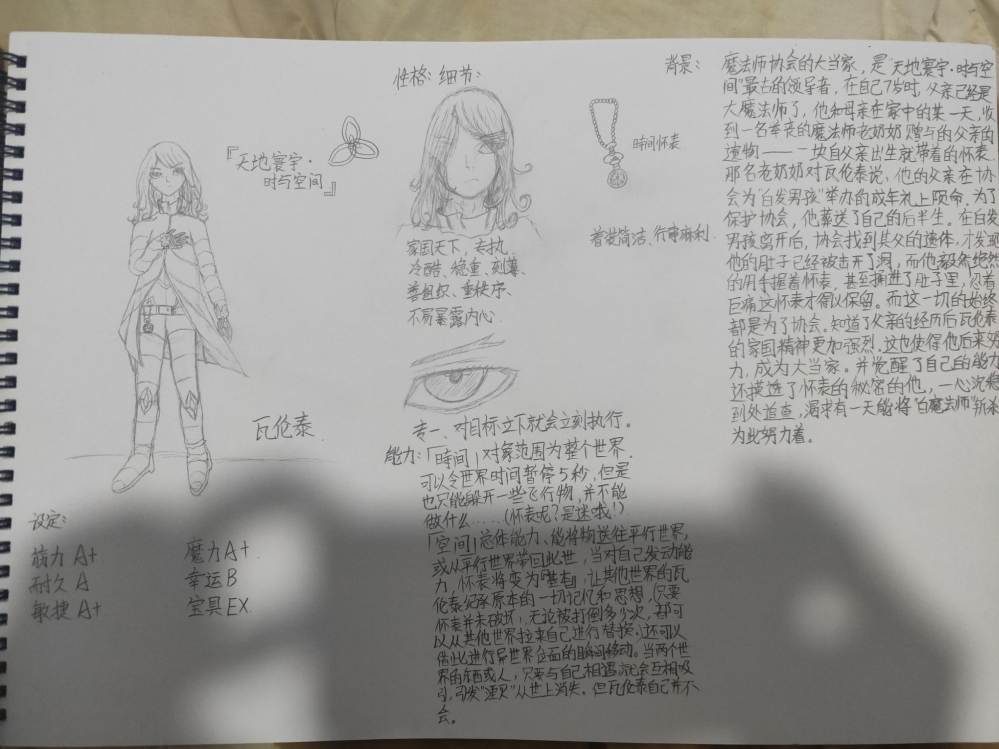 『天地寰宇·
时与空间』
瓦伦泰
设定:
筋力 A+
耐久 A
敏捷 A+
魔力 A+
幸运 B
宝具 EX
性格: 细节:
家国天下、专执、
冷酷、稳重、刻薄、
善组织、重秩序、
不易暴露内心
時间怀表
着装简洁、行事麻利.
专一、对目标立下就会立刻执行。
能力:「時间」对象范围为整个世界.
可以令世界时间暂停5秒,但是
也只能躲开一些飞行物,并不能
做什么……(怀表呢?是迷哦!)
「空间」总体能力、能将物送往平行世界,
或从平行世界带回此世,当对自己发动能
力,怀表将变为「基夲」,让其他世界的瓦
伦泰纪承原本的一切记忆和思想,(只要
怀表并未破坏),无论被打倒多少次,都可
以从其他世界拉来自己进行替换.还可以
借此进行异世界企面的瞬间移动。当两个世
界的东西或人,只要与自己相遇就会互相吸
引,引发"湮灭"从世上消失.但瓦伦泰自己并不
会。
背景:
魔法师协会的大当家,是"天地寰宇·时与空
间"最古的领导者,在自己7岁时,父亲已经是
大魔法师了,他和母亲在家中的某一天,收
到一名年老的魔法师老奶奶赠与的父亲的
遗物——一块自父亲出生就带着的怀表.
那名老奶奶对瓦伦泰说,他的父亲在协
会为"白发男孩"举办的成年礼上陨命.为了
保护协会,他葬送了自己的后半生.在白发
男孩离开后,协会找到其父的遗体,才发现
他的肚子已经被击开了洞,而他毅然绝然
的用手握着怀表,甚至捅进了肚子里,忍着
巨痛这怀表才得以保留.而这一切的始终
都是为了协会.知道了父亲的经历后瓦伦泰
的家国精神更加强烈.这也使得他后来努
力,成为大当家.并觉醒了自己的能力
还摸透了怀表的秘密的他,一心沉稳
到处追查,渴求有一天能将"白魔法师"斩杀
为此努力着。